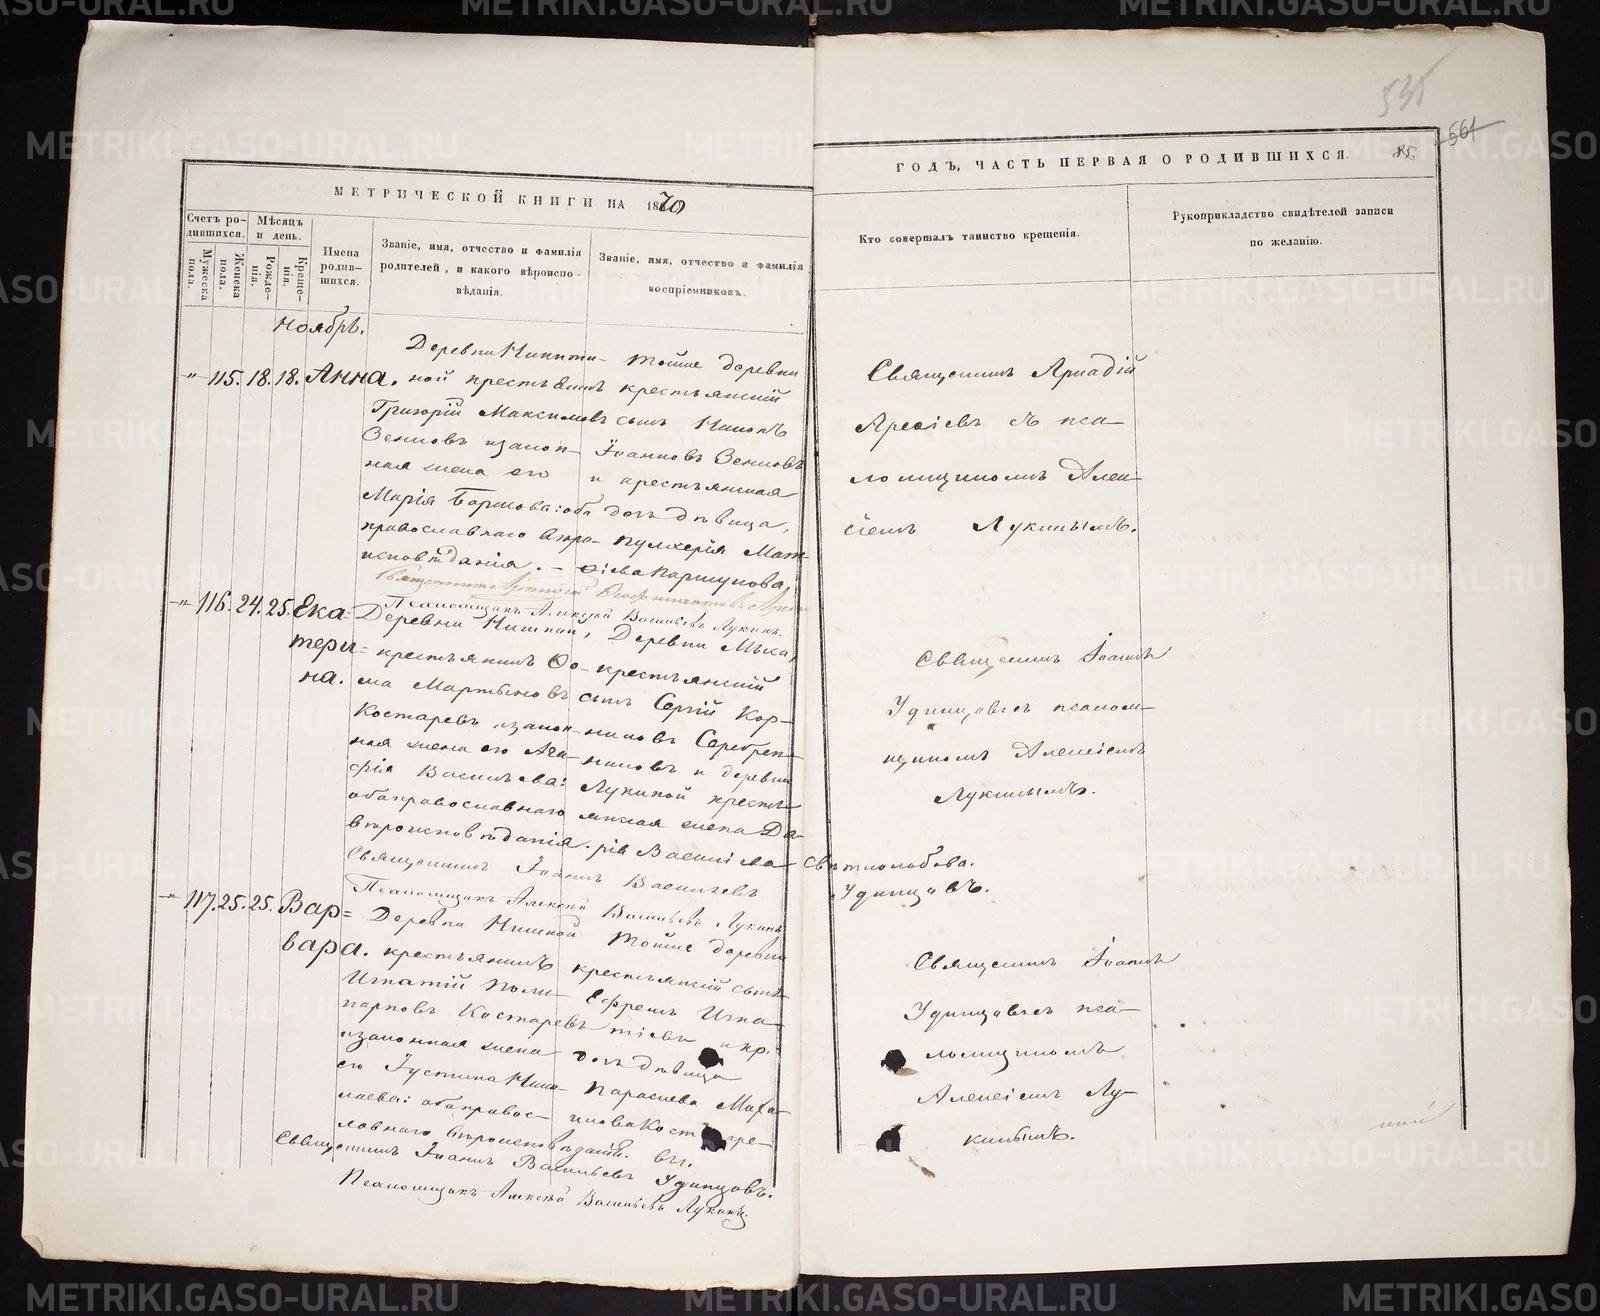 МЕТРИЧЕСКОЙ КНИГИ НА 1870
ГОДЪ, ЧАСТЬ ПЕРВАЯ О РОДИВШИХСЯ.
85
535
561
Счетъ родившихся.
Мужеска пола.
Женска пола.
Мѣсяцъ и день.
Рожденія.
Крещенія.
Имена родившихся.
Званіе, имя, отчество и фамилія
родителей, и какого вѣроиспо-
вѣданія.
Званіе, имя, отчество и фамилія
воспріемниковъ.
Кто совершалъ таинство крещенія.
Рукоприкладство свидѣтелей записи
по желанію.
Ноябрь.
115. 18. 18. Анна.
Деревни Никити-
ной крестьянинъ
Григорій Максимовъ
Зенковъ и закон-
ная жена его
Марія : оба
православнаго вѣро-
исповѣданія.
Тойже деревни
крестьянскій
сынъ
Іоанновъ Зенковъ
и крестьянская
дочь дѣвица,
Пулхерія Мат-
ѳіева Паршукова.
Священникъ Аркадій
съ пса-
ломщикомъ Алек-
сіемъ Лукинымъ.
Священникъ
Псаломщикъ Алексѣй Васильевъ Лукинъ.
116. 24. 25. Ека-
тери-
на.
Деревни
крестьянинъ Ѳо-
ма Мартыновъ
Костаревъ и закон-
ная жена его Ага-
фія Васильева:
оба православнаго
вѣроисповѣданія.
Деревни
крестьянскій
сынъ Сергій Кор-
ниловъ Серебрен-
никовъ и деревни
Лукиной кресть-
янская жена Да-
рія Васильева Свѣтлолобова.
Священникъ Іоаннъ
Удинцовъ съ псалом-
щикомъ Алексіемъ
Лукинымъ.
Священникъ Іоаннъ Васильевъ Удинцовъ.
Псаломщикъ Алексѣй Васильевъ Лукинъ
117. 25. 25. Вар-
вара.
Деревни
крестьянинъ
Игнатій Поли-
карповъ Костаревъ
и законная жена
его Іустина Нико-
лаева: оба правос-
лавнаго вѣроисповѣданія.
Тойже деревни
крестьянскій сынъ
Ефремъ Игна-
тіевъ и кр.
дочь дѣвица
Параскева Миха-
илова Костаре-
ва.
Священникъ Іоаннъ
Удинцовъ съ пса-
ломщикомъ
Алексіемъ Лу-
кинымъ.
Священникъ Іоаннъ Васильевъ Удинцовъ.
Псаломщикъ Алексѣй Васильевъ Лукинъ.
METRIKI.GASO-URAL.RU